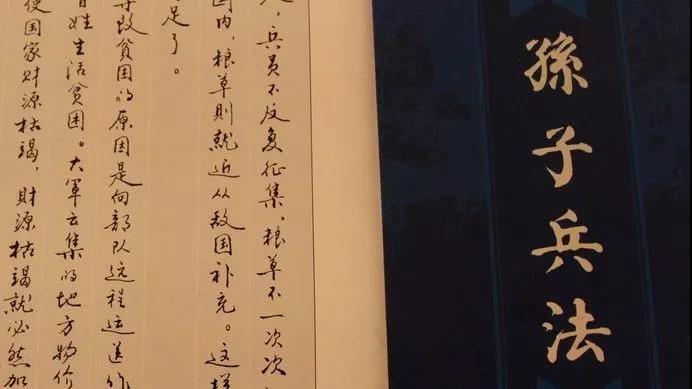 孫子兵法
，兵员不反复征集，粮草不一次次
国内，粮草则就近从敌国补充。这样
足了。
导致贫困的原因是向部队远程运送作
百姓生活贫困。大军云集的地方物价
使国家财源枯竭，财源枯竭就必然加